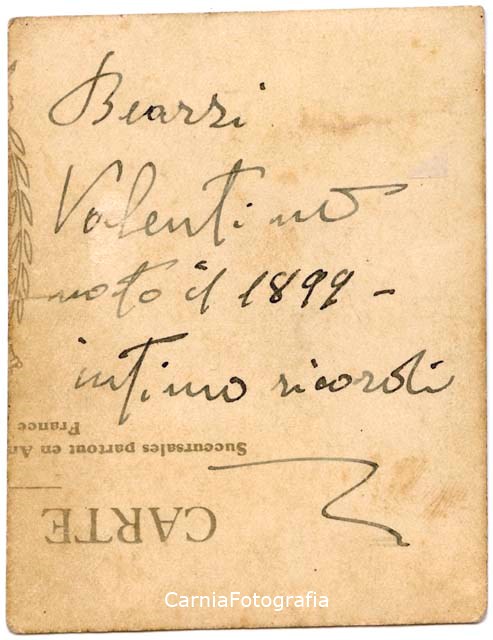 Bearzi
Valentino
nato il 1899 -
intimo ricordi
France
Succursales partout en Am
CARTE
CarniaFotografia